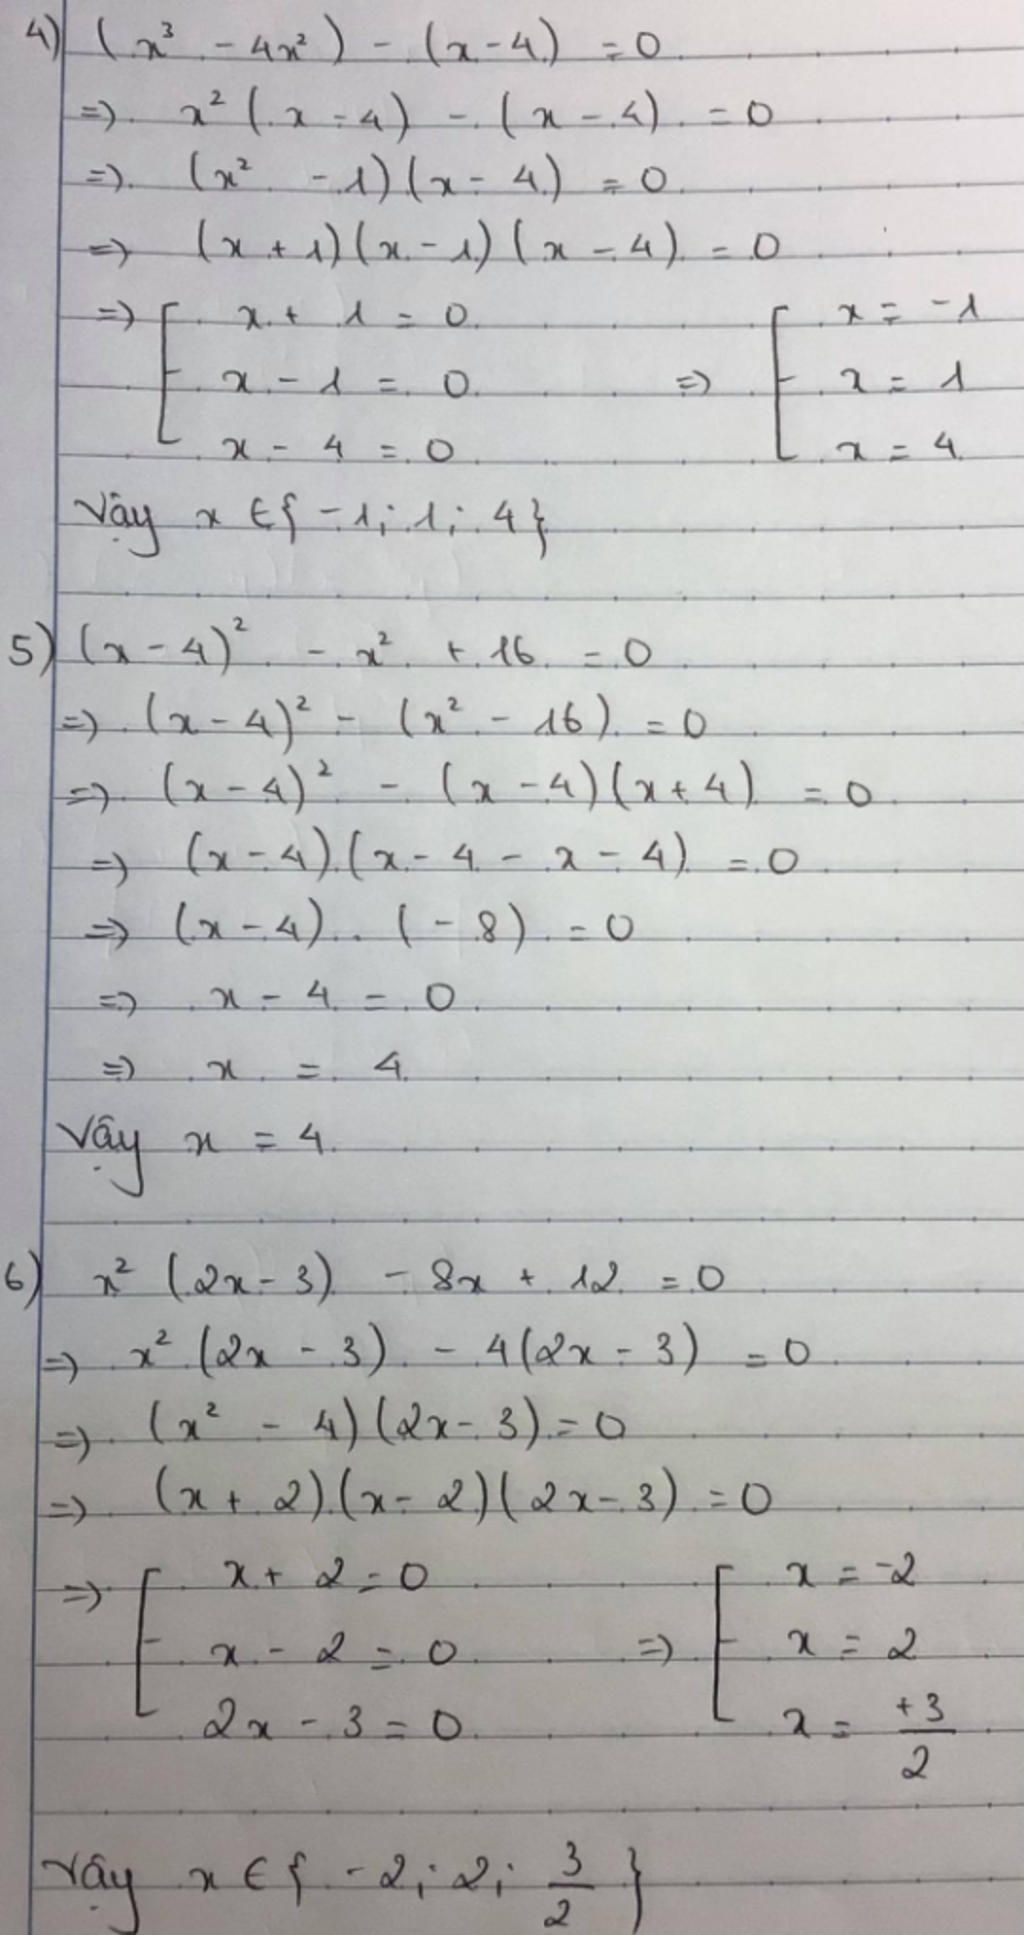 4) (x³ - 4x²) - (x - 4) = 0
=> x² (x - 4) - (x - 4) = 0
=> (x² - 1)(x - 4) = 0
=> (x + 1)(x - 1)(x - 4) = 0
=> [ x + 1 = 0 => [ x = -1
x - 1 = 0 x = 1
x - 4 = 0 x = 4
Vậy x ∈ { -1; 1; 4 }
5) (x - 4)² - x² + 16 = 0
=> (x - 4)² - (x² - 16) = 0
=> (x - 4)² - (x - 4)(x + 4) = 0
=> (x - 4)(x - 4 - x - 4) = 0
=> (x - 4) . (-8) = 0
=> x - 4 = 0
=> x = 4
Vậy x = 4
6) x² (2x - 3) - 8x + 12 = 0
=> x² (2x - 3) - 4(2x - 3) = 0
=> (x² - 4)(2x - 3) = 0
=> (x + 2)(x - 2)(2x - 3) = 0
=> [ x + 2 = 0 => [ x = -2
x - 2 = 0 x = 2
2x - 3 = 0 x = +3/2
Vậy x ∈ { -2; 2; 3/2 }